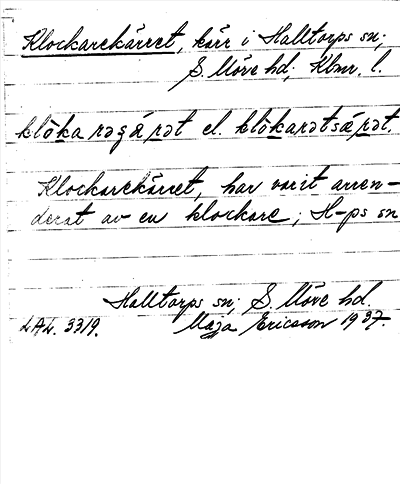 Klockarekärret, kärr i Halltorps sn;
S. Möre hd; Klmr. l.
klòkarəgá el. klòkarə
Klockarekärret, har varit arren-
derat av en klockare; H-ps sn
Halltorps sn; S. Möre hd.
LAL. 3319. Maja Ericsson 1937.